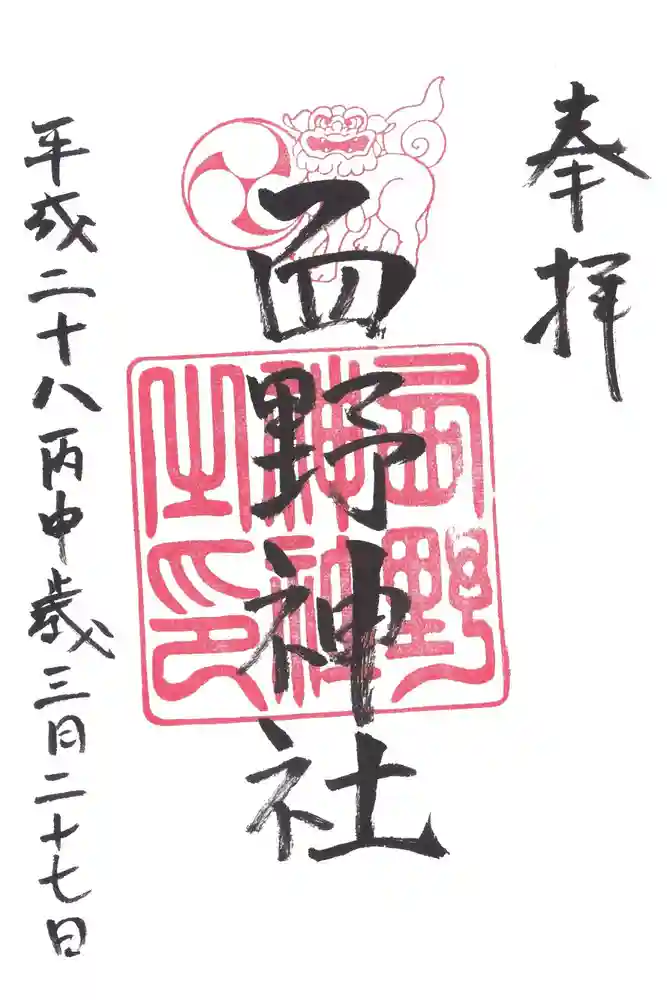 奉拝
西野神社
平成二十八丙申歳三月二十七日
西野
神社
之印